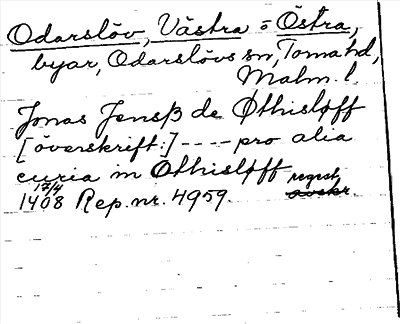 Odarslöv, Västra o Östra,
byar, Odarslövs sn, Torna hd,
Malm. l.
Jonas Jensß de Øthisløff
[överskrift:] ---- pro alia
curia in Othisløff regest
17/4
1408 Rep. nr. 4959. avskr.